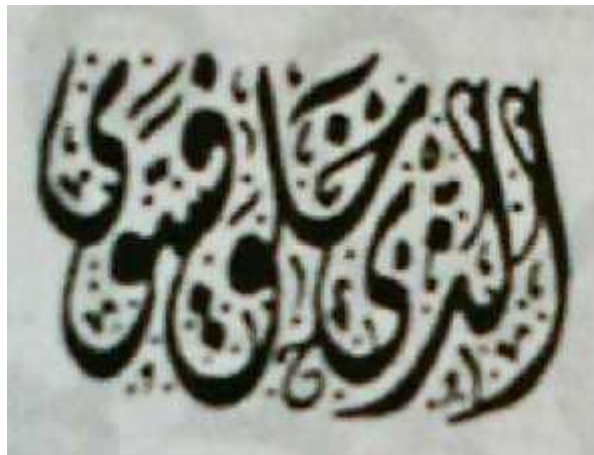 الذي خلق فسوى